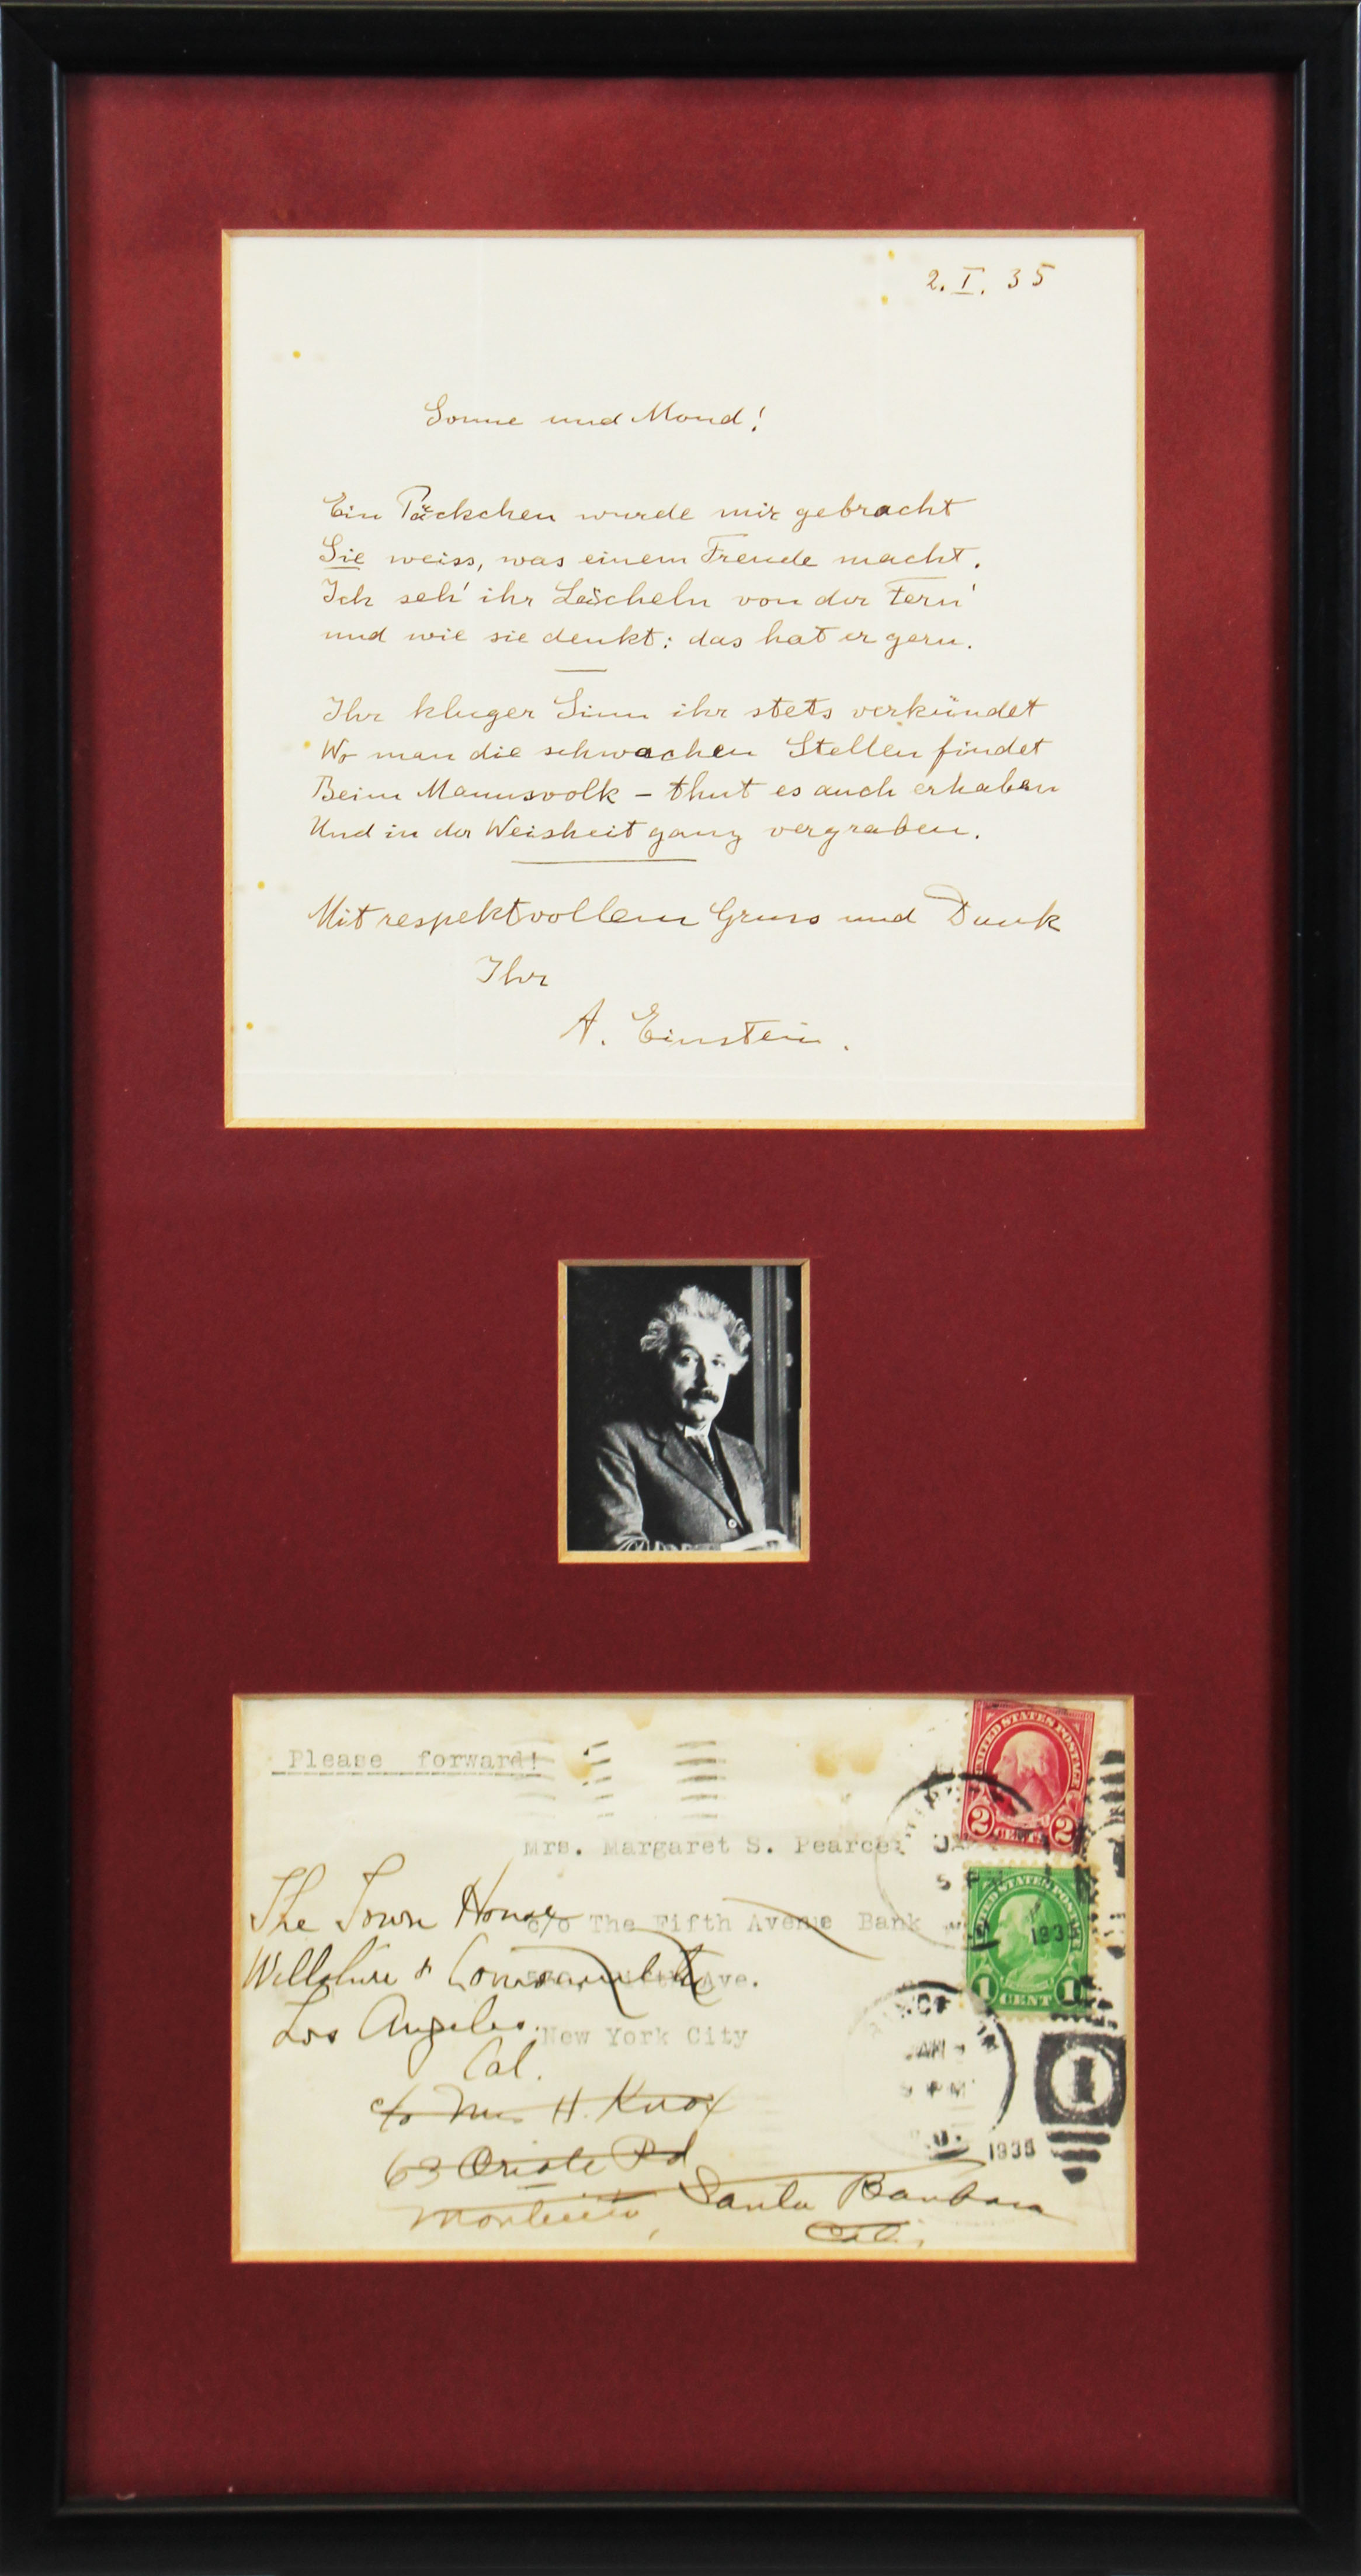 2. I. 35
Sonne und Mond!
Ein Päckchen wurde mir gebracht
Sie weiss, was einem Freude macht.
Ich seh' ihr Lächeln von der Fern'
und wie sie denkt: das hat er gern.
Ihr kluger Sinn ihr stets verkündet
Wo man die schwachen Stellen findet
Beim Mannsvolk – thut es auch erhaben
Und in der Weisheit ganz vergraben.
Mit respektvollem Gruss und Dank
Ihr
A. Einstein.
Please forward!
UNITED STATES POSTAGE
2 CENTS 2
Mrs. Margaret S. Pearce
5 PM
The Town House
c/o The Fifth Avenue Bank
193
UNITED STATES POSTAGE
1 CENT 1
Wilshire &
Ave.
Los Angeles.
New York City
Cal.
JAN
PM
1
c/o Mrs H. Knox
1935
63 Oriole Rd
Montecito, Santa Barbara
Cal.